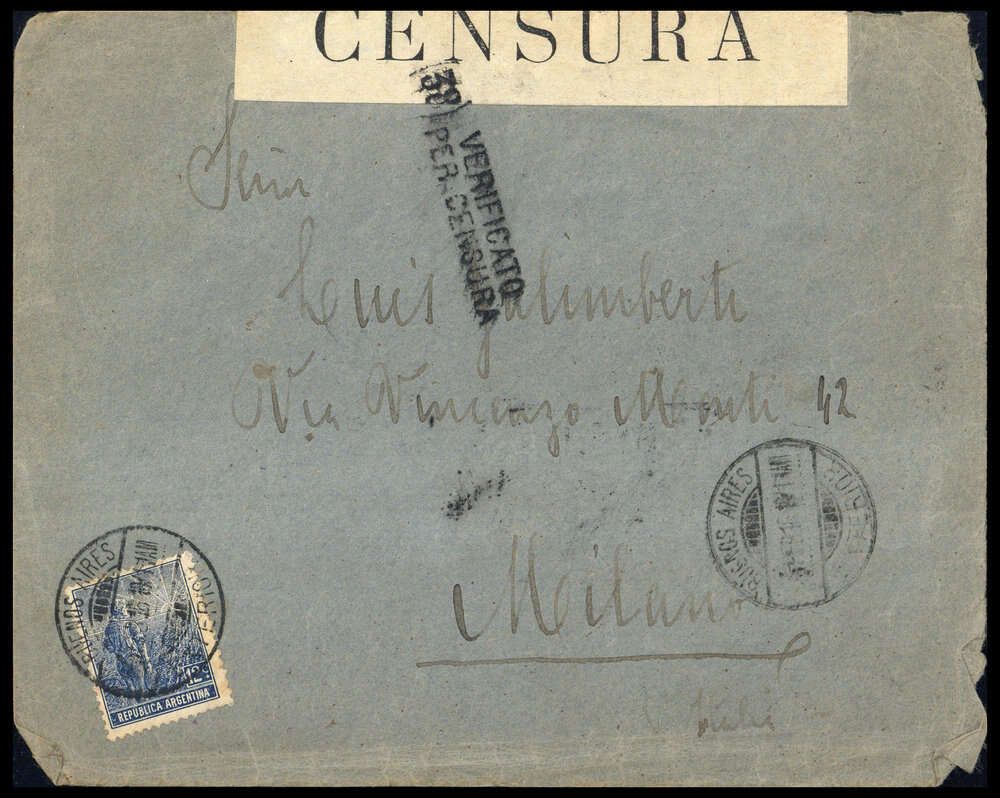 CENSURA
39 VERIFICATO
PER CENSURA
Señor
Luis Galimberti
Via Vincenzo Monti 42
BUENOS AIRES
Milano
BUENOS AIRES
12
REPUBLICA ARGENTINA
Italia